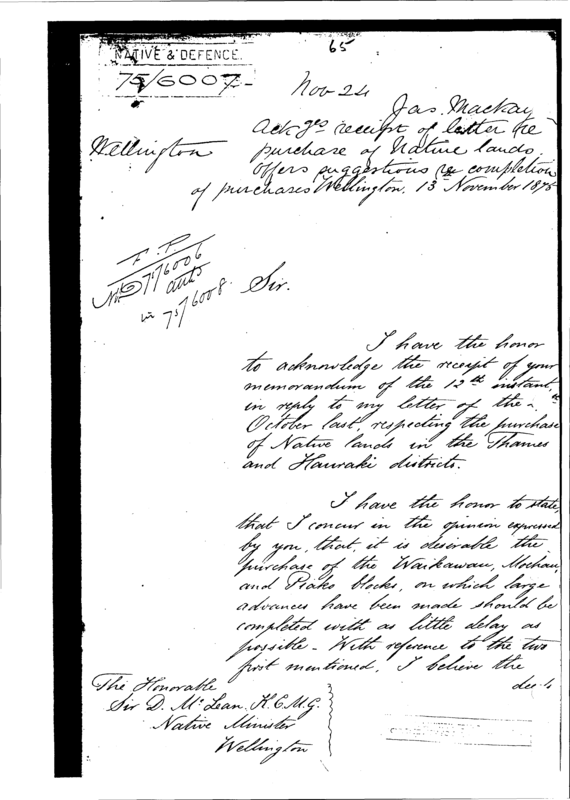 65
NATIVE & DEFENCE.
75/6007
Nov 24
Jas. Mackay
Ackges receipt of letter re
Wellington
purchase of Native lands.
Offers suggestions re completion
of purchases
Wellington. 13 November 1875
F. P.
75/6006
in 75/6008.
Sir.
I have the honor
to acknowledge the receipt of your
memorandum of the 12th instant,
in reply to my letter of the
October last, respecting the purchase
of Native lands in the Thames
and Hauraki districts.
I have the honor to state,
that I concur in the opinion expressed
by you, that, it is desirable the
purchase of the Waikawau, Moehau,
and Piako blocks, on which large
advances have been made should be
completed with as little delay as
possible - With reference to the two
first mentioned, I believe the
The Honorable
Sir D. McLean. K.C.M.G.
Native Minister
Wellington